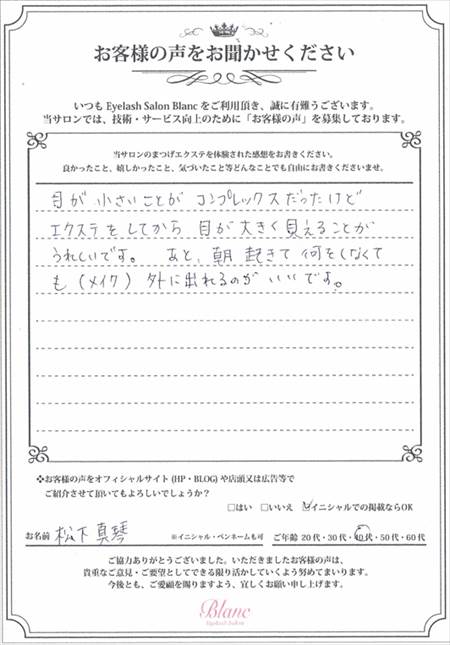 お客様の声をお聞かせください
いつも Eyelash Salon Blanc をご利用頂き、誠に有難うございます。
当サロンでは、技術・サービス向上のために「お客様の声」を募集しております。
当サロンのまつげエクステを体験された感想をお書きください。
良かったこと、嬉しかったこと、気づいたこと等どんなことでも自由にお書きくださいませ。
目が 小さいことが コンプレックスだったけど
エクステをしてから 目が大きく見えることが
うれしいです。 あと、朝 起きて 何もしなくて
も(メイク) 外に出れるのが いいです。
❖お客様の声をオフィシャルサイト(HP・BLOG)や店頭又は広告等で
ご紹介させて頂いてもよろしいでしょうか?
□はい □いいえ ☑イニシャルでの掲載ならOK
お名前 松下 真琴 ※イニシャル・ペンネームも可 ご年齢 20代・30代・40代・50代・60代
ご協力ありがとうございました。いただきましたお客様の声は、
貴重なご意見・ご要望としてできる限り活かしていくよう努めてまいります。
今後とも、ご愛顧を賜りますよう、宜しくお願い申し上げます。
Blanc
Eyelash Salon